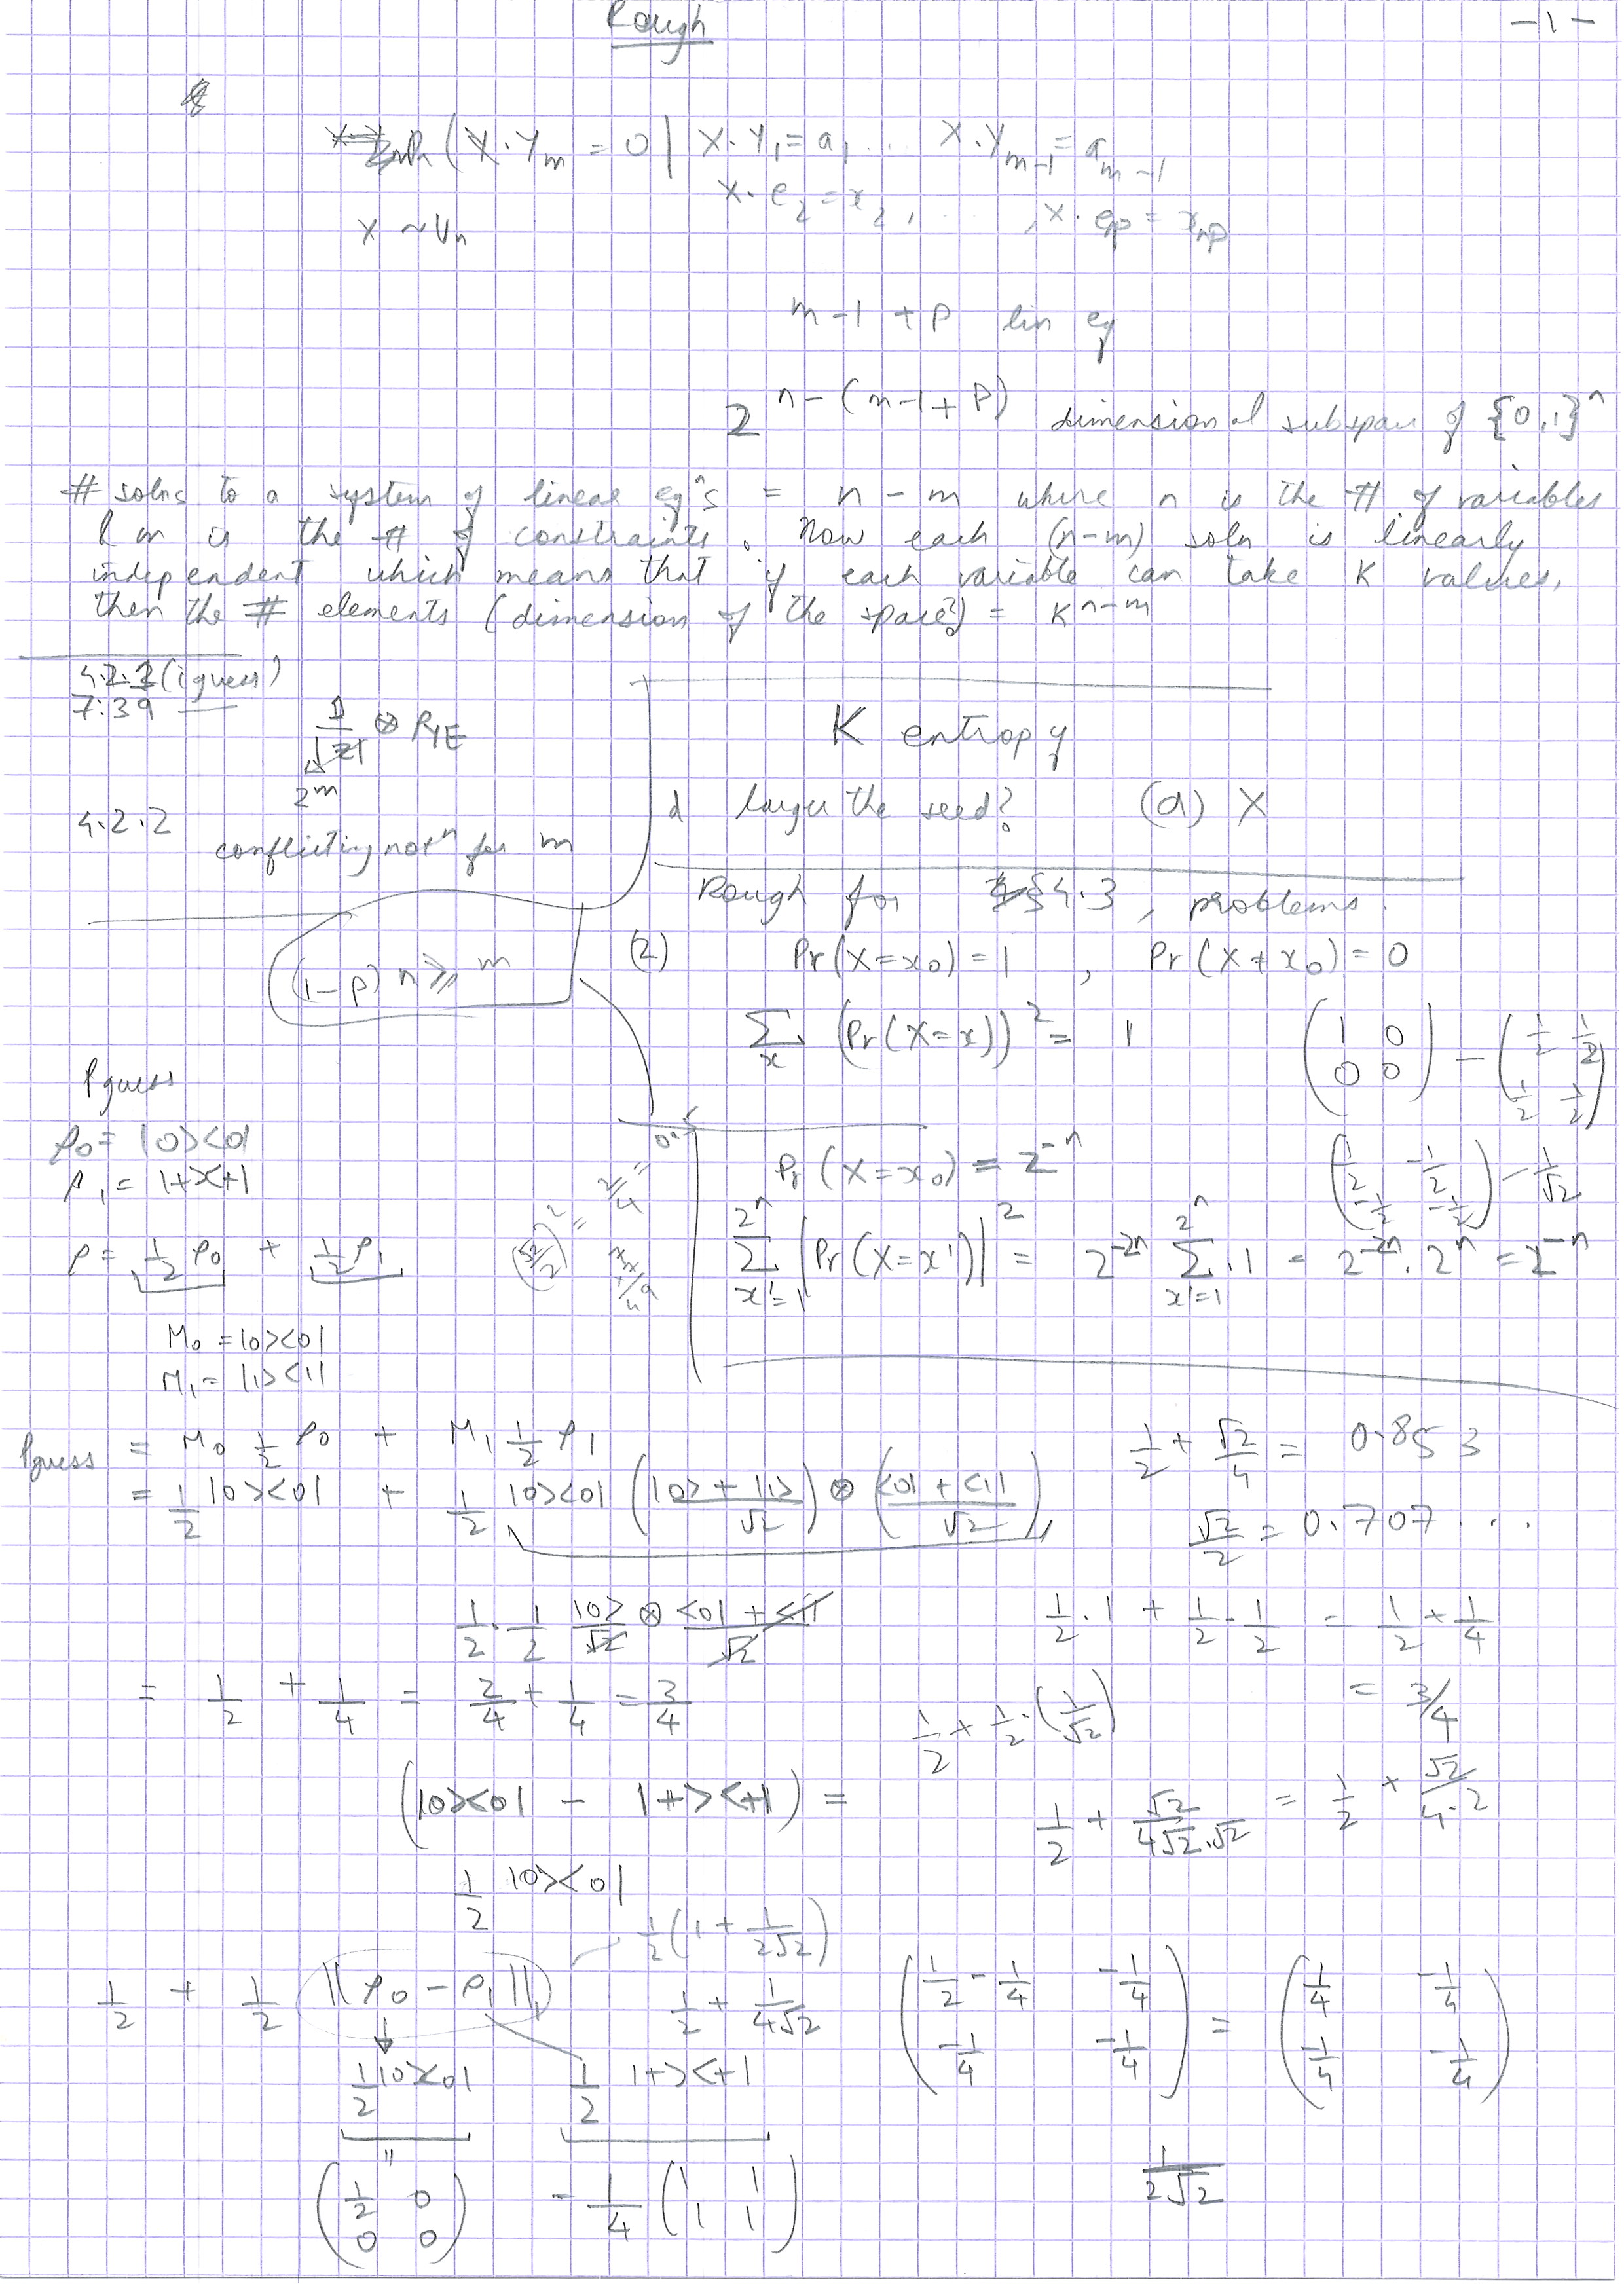 Rough
-1-
Pr(X·Y_m = 0 | X·Y_1 = a_1 ... X·Y_{m-1} = a_{m-1}
X·e_2 = x_2, ... , X·e_p = x_{np}
X ~ U_n
m-1+p lin eq
2^{n-(m-1+p)} dimensional subspace of {0,1}^n
# solns to a system of linear eq^ns = n-m where n is the # of variables
& m is the # of constraints. Now each (n-m) soln is linearly
independent which means that if each variable can take K values,
then the # elements (dimension of the space?) = K^{n-m}
4.2.2 (i guess)
7:39
1/|Z| ⊗ ρ_{YE}
2^m
4.2.2
conflicting not^n for m
(1-p) n ≥ m
K entropy
d larger the seed? (a) X
Rough for §4.3, problems.
(2) Pr(X=x_0) = 1 , Pr(X≠x_0) = 0
Σ_x (Pr(X=x))^2 = 1
(1 0
0 0) - (1/2 1/2
1/2 1/2)
Pr(X=x_0) = 2^{-n}
(1/2 -1/2
-1/2 -1/2) - 1/√2
Σ_{x'=1}^{2^n} |Pr(X=x')|^2 = 2^{-2n} Σ_{x'=1}^{2^n} 1 = 2^{-2n}·2^n = 2^{-n}
(√2/2)^2 = 2/4 =
Pguess
ρ_0 = |0><0|
ρ_1 = |+><+|
ρ = 1/2 ρ_0 + 1/2 ρ_1
M_0 = |0><0|
M_1 = |1><1|
Pguess = M_0 1/2 ρ_0 + M_1 1/2 ρ_1
= 1/2 |0><0| + 1/2 |0><0| ((|0>+|1>)/√2) ⊗ ((<0|+<1|)/√2)
1/2 · 1/2 |0>/√2 ⊗ (<0|+<1|)/√2
= 1/2 + 1/4 = 2/4 + 1/4 = 3/4
1/2 + √2/4 = 0.853
√2/2 = 0.707...
1/2·1 + 1/2·1/2 = 1/2 + 1/4
= 3/4
1/2 + 1/2·(1/√2)
1/2 + √2/(4√2·√2) = 1/2 + √2/(4·2)
(|0><0| - |+><+|) =
1/2 |0><0|
1/2 (1 + 1/(2√2))
1/2 + 1/2 ||ρ_0 - ρ_1||_1
1/2 + 1/(4√2)
1/2 |0><0| 1/2 |+><+|
"
(1/2 0
0 0) - 1/4 (1 1
1 1)
(1/2 - 1/4 -1/4
-1/4 -1/4) = (1/4 -1/4
-1/4 -1/4)
1/(2√2)